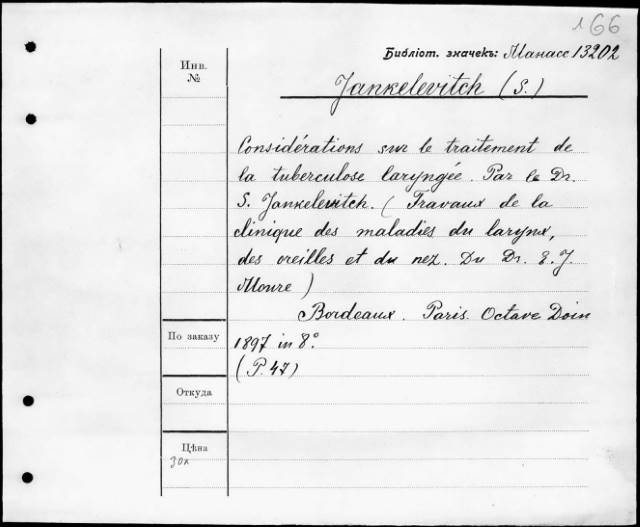 166
Библіот. значекъ: Манасс 13202
Инв.
№
Jankelevitch (S.)
Considérations sur le traitement de
la tuberculose laryngée. Par le Dr.
S. Jankelevitch. (Travaux de la
clinique des maladies du larynx,
des oreilles et du nez. Du Dr. E. J.
Moure)
Bordeaux. Paris. Octave Doin
По заказу
1897 in 8°.
(P. 47)
Откуда
Цѣна
30к